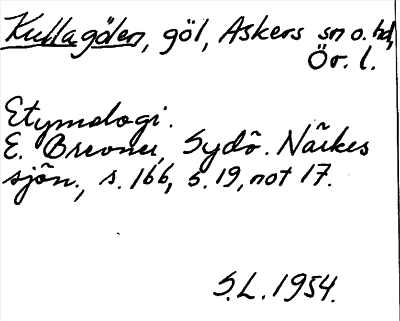 Kullagölen, göl, Askers sn o. hd,
Ör. l.
Etymologi.
E. Brevner, Sydö. Närkes
sjön., s. 166, s. 19, not 17.
S.L. 1954.